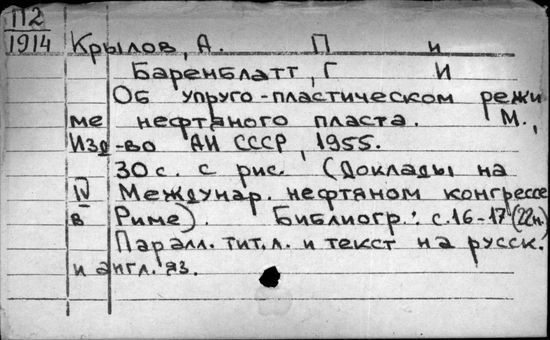 П2
1914
Крылов, А. П и
Баренблатт, Г И
Об упруго-пластическом режи
ме нефтяного пласта. М.,
Изд-во АН СССР, 1955.
30 с. с рис. (Доклады на
IV Междунар. нефтяном конгрессе
в Риме). Библиогр.: с. 16-17 (22н.)
Паралл. тит. л. и текст на русск.
и англ. яз.